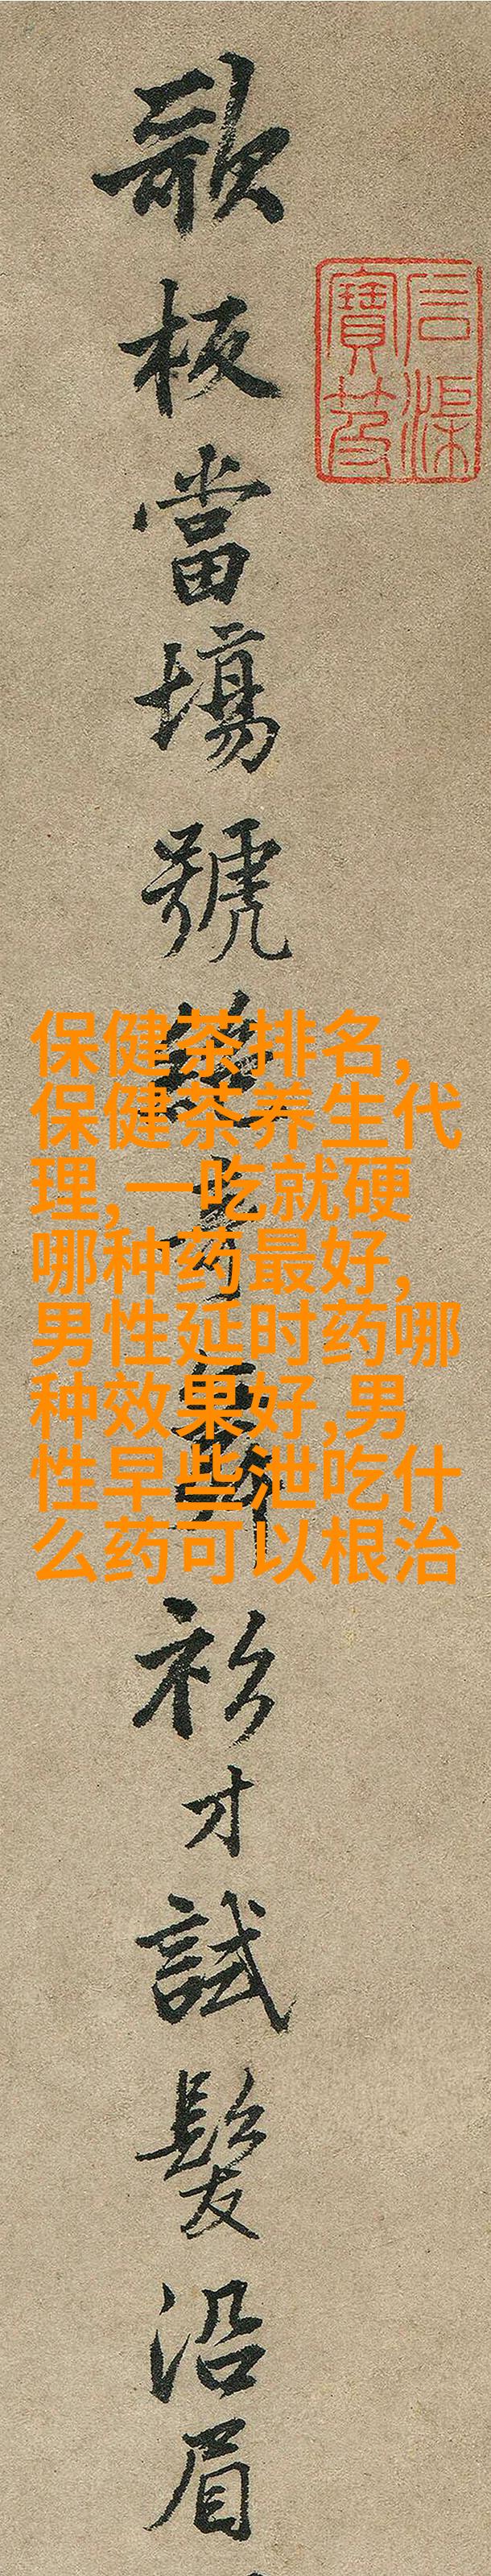 歌板當場號舞衫才試髮沿眉
石渠
寶笈
保健茶排名,
保健茶养生代
理,一吃就硬
哪种药最好,
男性延时药哪
种效果好,男
性早些泄吃什
么药可以根治